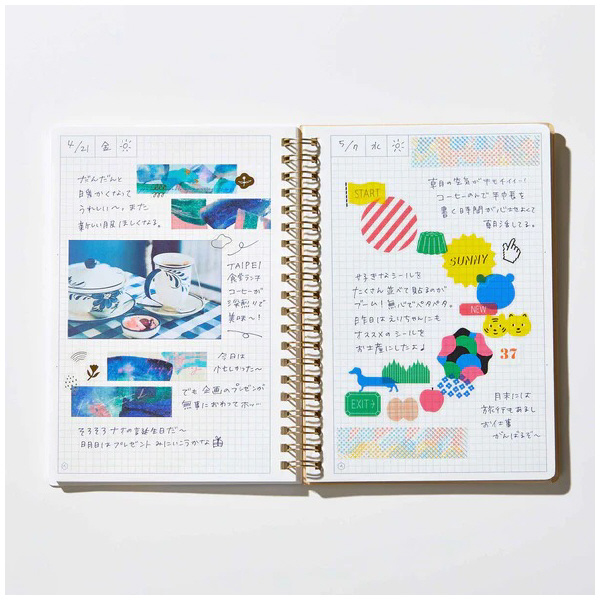 4/21 金
だんだんと
日差かくなって
うれしい〜。また
新しい服ほしくなる。
TAIPEI
食堂ランチ
コーヒーが
深煎りで
美味〜!
今日は
バタバタした〜
でも企画のプレゼンが
無事におわってホッ…
そろそろナナの誕生日だ〜
明日はプレゼントみにいこうかな
5/7 水
朝の空気がキモチイイ!
コーヒーのんで手帳を
書く日時間が心地よくて
朝活してる。
START
SUNNY
好きなシールを
たくさん並べて貼るのが
ブーム!無心でペタペタ。
昨日はえりちゃんにも
オススメのシールを
お土産にしたよ♪
NEW
37
EXIT→
月末には
旅行もあるし
お仕事
がんばるぞ〜